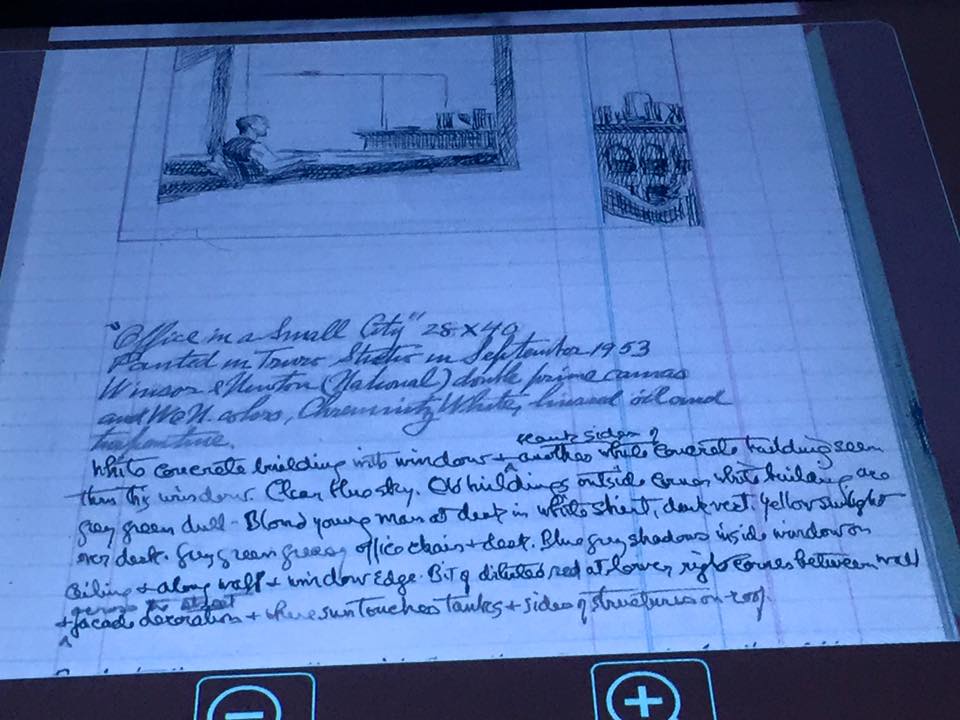 "Office in a Small City" 28 x 40
Painted in Truro Studio in September 1953
Winsor & Newton (National) double prime canvas
and W & N. colors, Chremnitz White, linseed oil and
turpentine.
sides of
White concrete building into window + another white concrete building seen
thru this window. Clear blue sky. Old buildings outside corner white building are
grey green dull - Blond young man at desk in white shirt, dark vest. Yellow sunlight
over desk. Grey green office chair + desk. Blue grey shadows inside window on
ceiling + along wall + window edge. Bit of diluted red at lower right corner between wall
across the street
+ facade decoration + where sun touches tanks + sides of structures on roof.